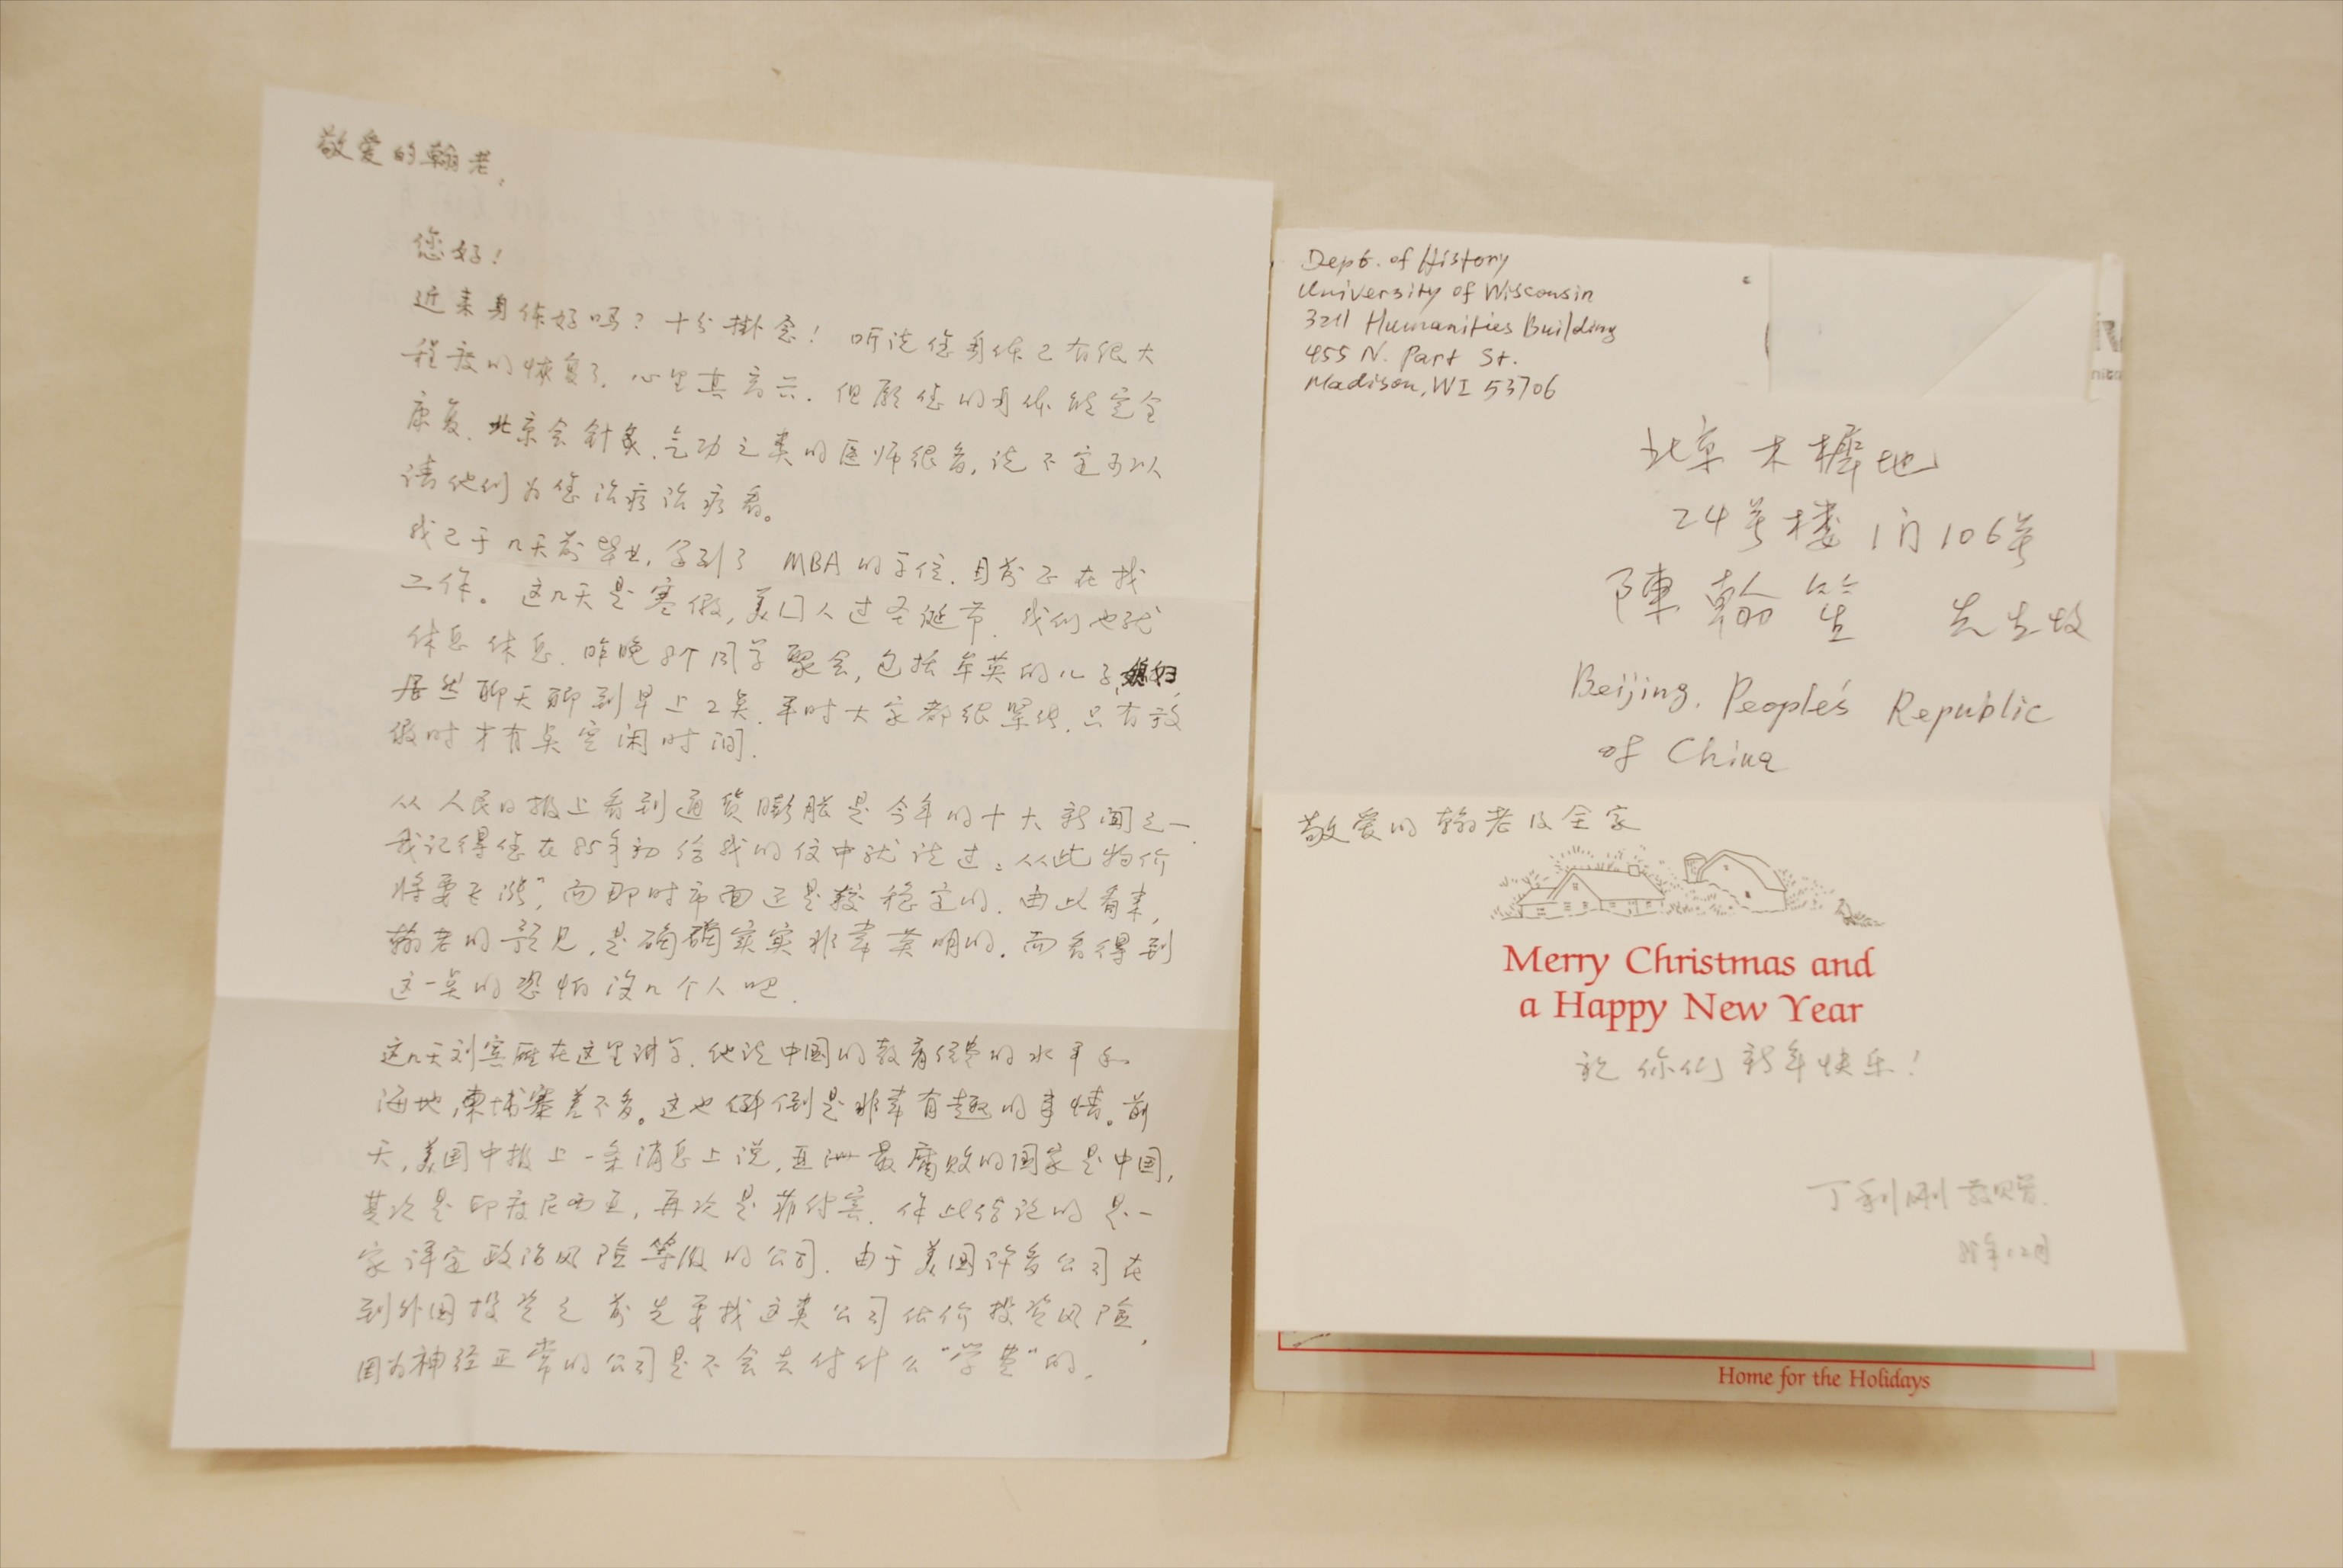 敬爱的翰老，
您好！
近来身体好吗？十分掛念！听说您身体已有很大
程度的恢复了，心里真高兴．但愿您的身体能完全
康复．北京会针炙、气功之类的医师很多，说不定可以
请他们为您治疗治疗看。
我已于几天前毕业，拿到了 MBA 的学位．目前正在找
工作。这几天是寒假，美国人过圣诞节．我们也就
休息休息．昨晚8个同学聚会，包括牟英的儿子媳妇，
居然聊天聊到早上2点．平时大家都很紧张．只有放
假时才有点空闲时间．
从人民日报上看到通货膨胀是今年的十大新闻之一．
我记得您在85年初给我的信中就说过："从此物价
将要飞涨"，而那时市面还是较稳定的．由此看来，
翰老的预见，是确确实实非常英明的．而看得到
这一点的恐怕没几个人吧．
这几天刘宾雁在这里讲学．他说中国的教育经费的水平和
海地，柬埔寨差不多。这也倒是非常有趣的事情。前
天，美国中报上一条消息上说，亚洲最腐败的国家是中国，
其次是印度尼西亚，再次是菲律宾．作此结论的是一
家评定政治风险等级的公司．由于美国许多公司在
到外国投资之前先要找这类公司估价投资风险，
因为神经正常的公司是不会去付什么"学费"的．
Dept. of History
University of Wisconsin
3211 Humanities Building
455 N. Part St.
Madison, WI 53706
北京木樨地
24号楼1门106号
陳翰笙 先生收
Beijing, People's Republic
of China
敬爱的翰老及全家
Merry Christmas and
a Happy New Year
祝你们新年快乐！
丁利刚敬贺．
88年12月
Home for the Holidays